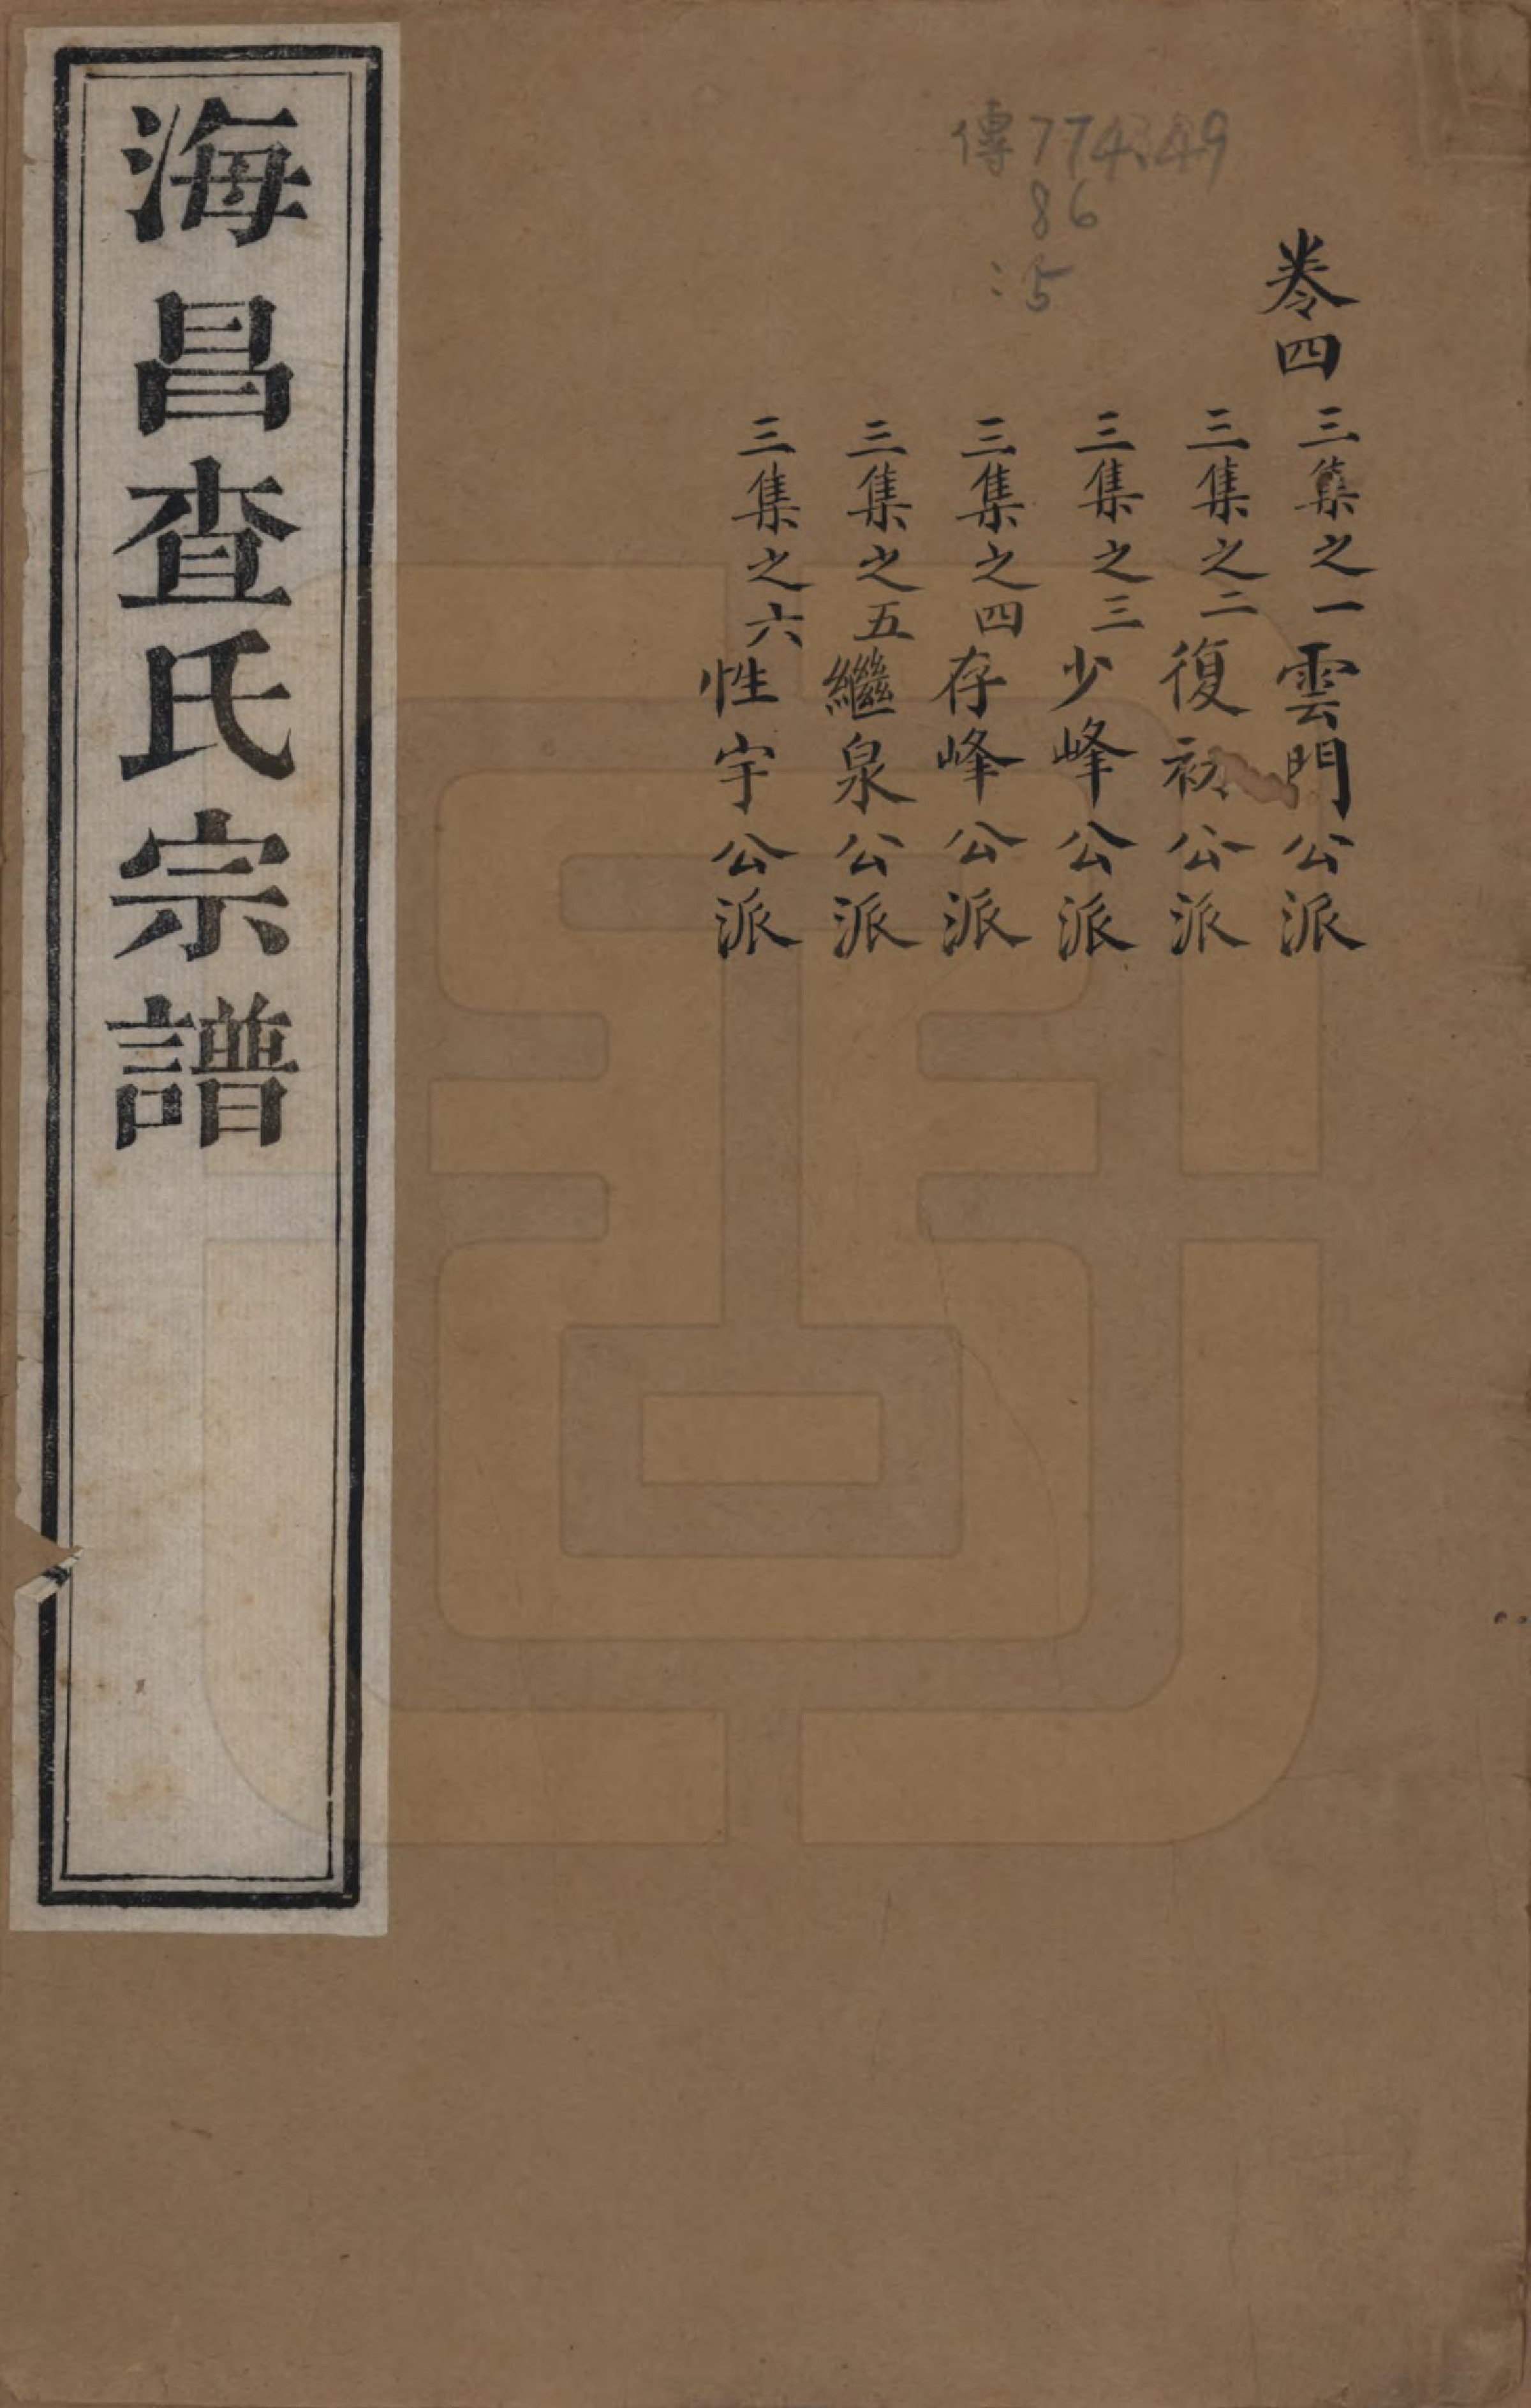 傳774.49
86
:5
卷四
三集之一雲門公派
三集之二復初公派
三集之三少峰公派
三集之四存峰公派
三集之五繼泉公派
三集之六性宇公派
海昌查氏宗譜